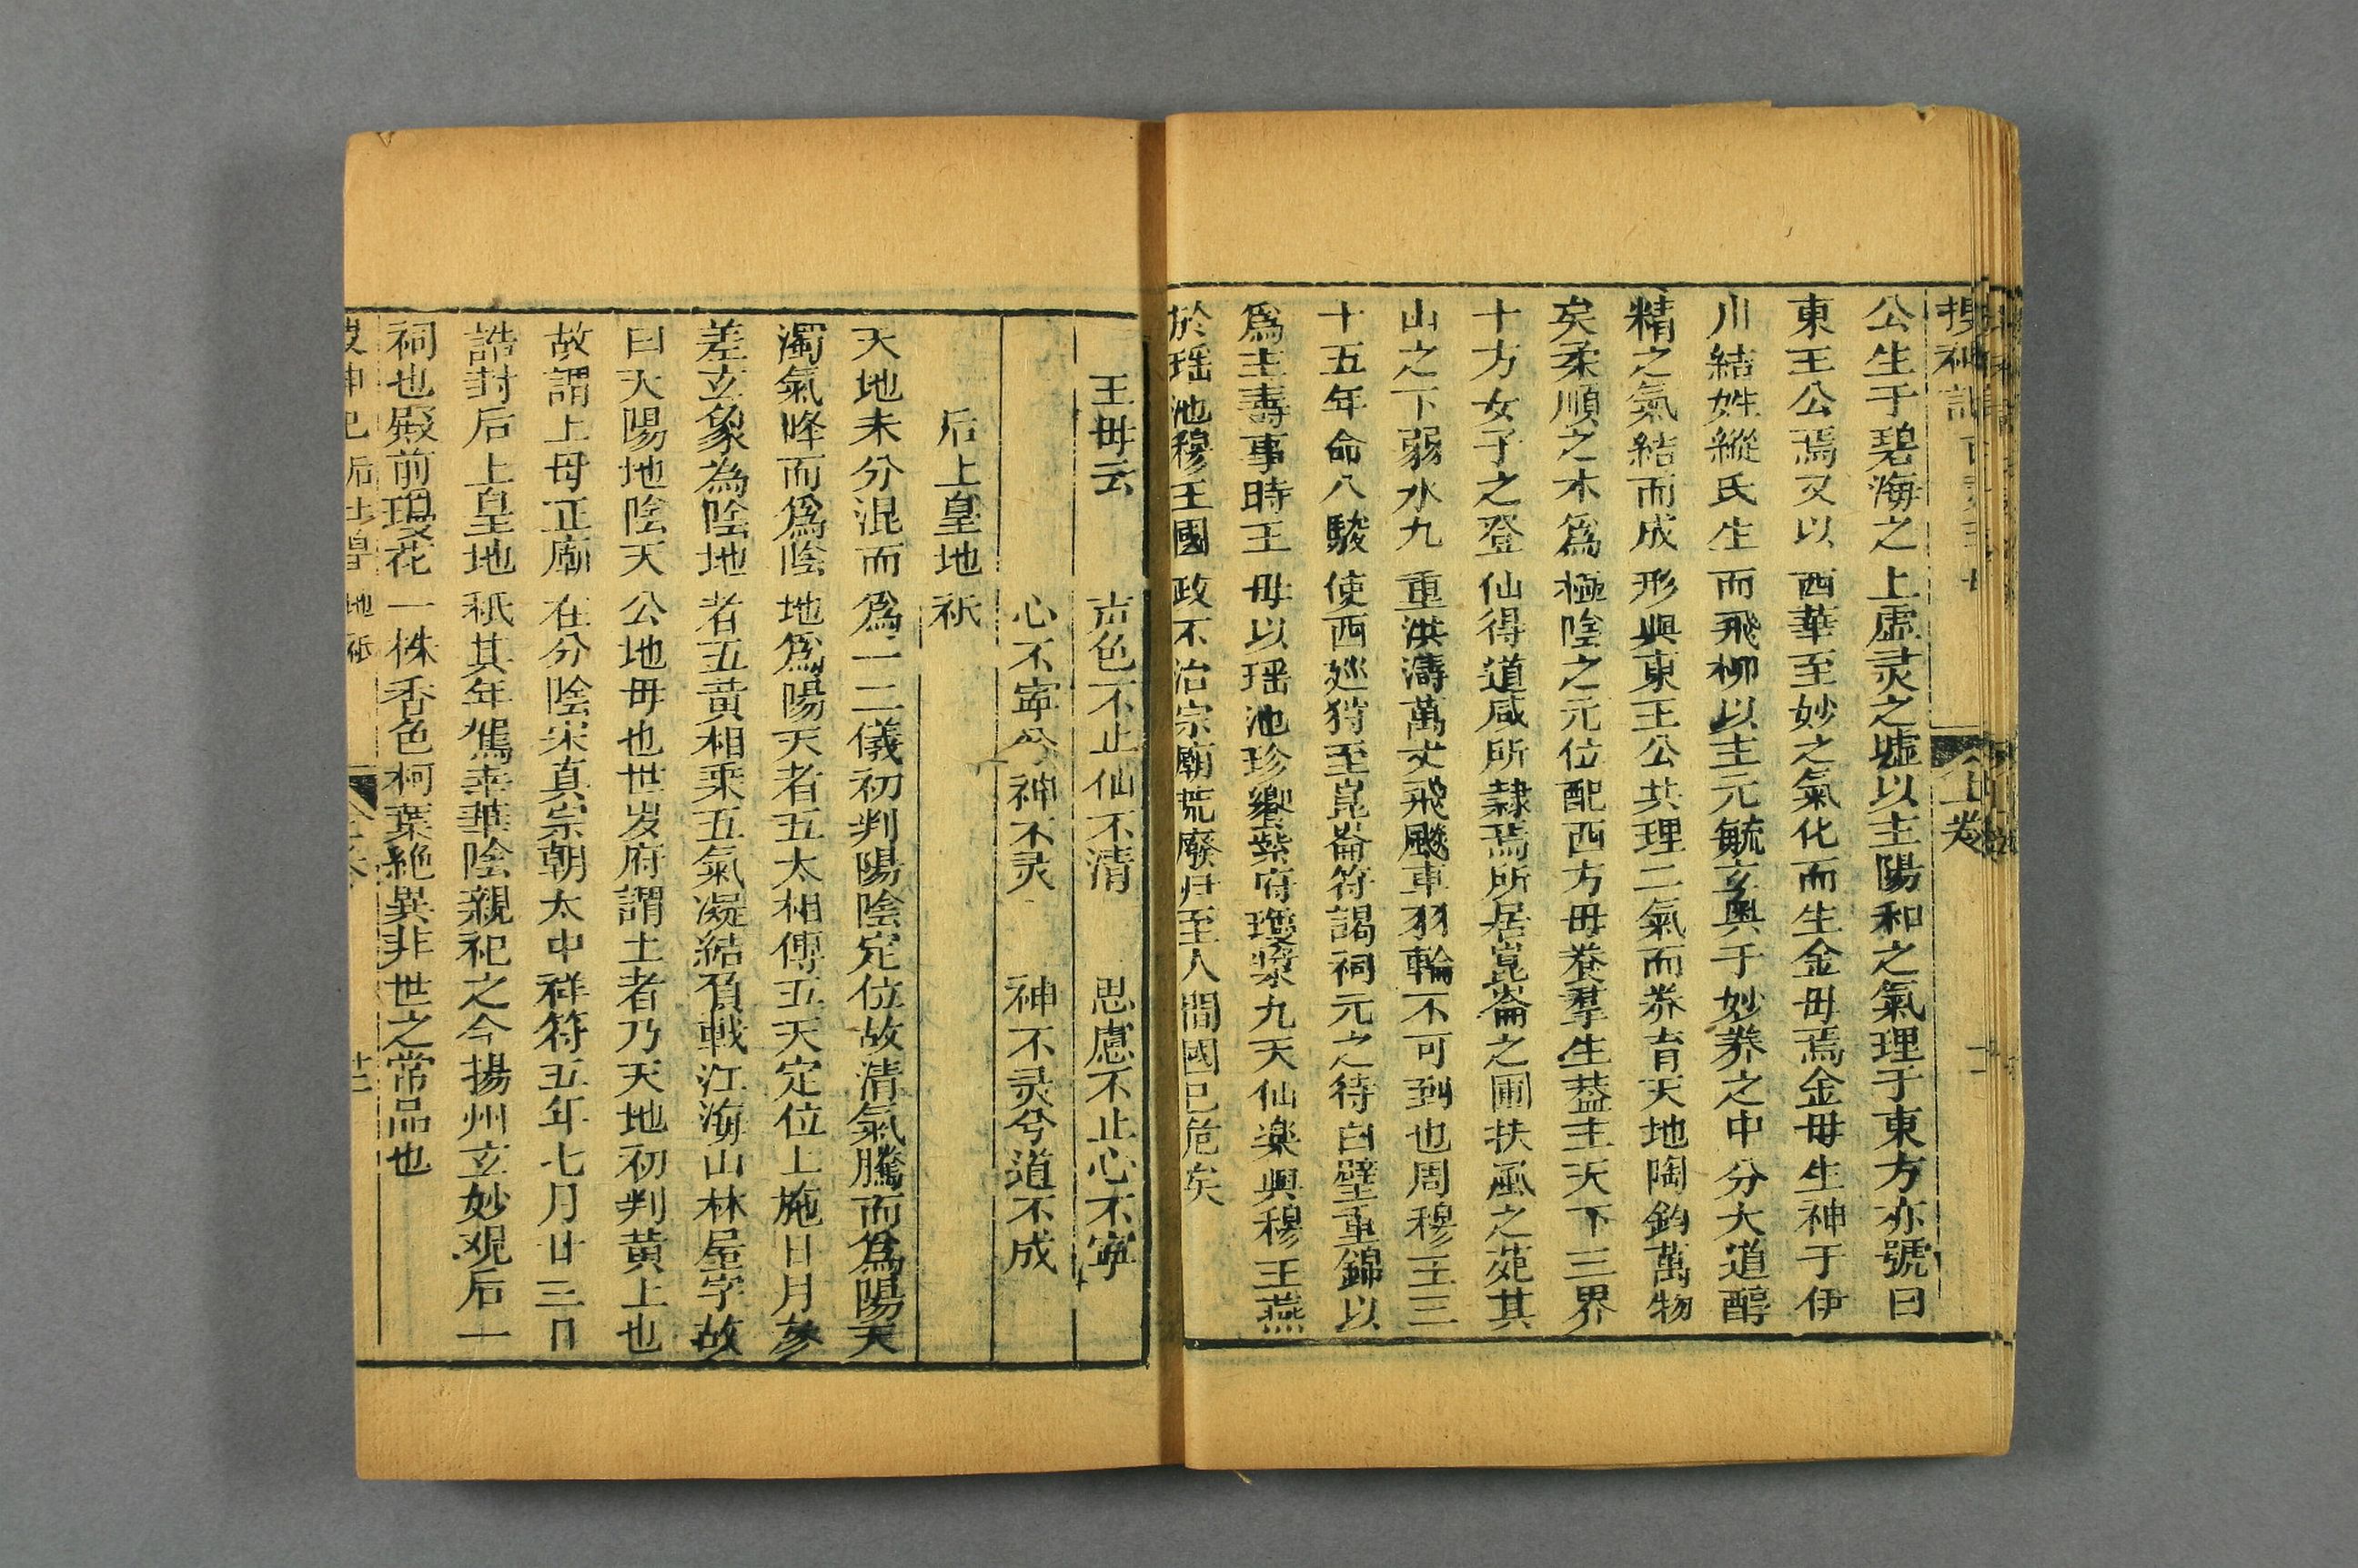 搜神記
上卷
公生于碧海之上虛灵之墟以主陽和之氣理于東方亦號曰
東王公焉又以西華至妙之氣化而生金毋焉金毋生神于伊
川結姓緱氏生而飛柳以主元毓玄奧于妙养之中分大道醇
精之氣結而成形與東王公共理二氣而养育天地陶鈞萬物
矣柔順之木爲極陰之元位配西方毋养羣生葢主天下三界
十方女子之登仙得道咸所隷焉所居崑崙之圃扶風之苑其
山之下弱水九重洪濤萬丈飛飈車羽輪不可到也周穆王三
十五年命八駿使西廵狩至崑崙符謁祠元之待白壁重錦以
爲主壽事時王毋以瑶池珍饗紫府瓊漿九天仙楽與穆王燕
於瑶池穆王國政不治宗廟荒廢归至人間國已危矣
王毋云 声色不止仙不清 思慮不止心不寧
心不寜兮神不灵 神不灵兮道不成
后土皇地祇
天地未分混而爲一二儀初判陽陰定位故清氣騰而爲陽天
濁氣降而爲陰地爲陽天者五太相傅五天定位上施日月参
差玄象為陰地者五黄相乘五氣凝結負載江海山林屋字故
曰天陽地陰天公地毋也世岁府謂土者乃天地初判黄土也
故謂土母正廟在分陰宋真宗朝太中祥符五年七月廿三日
誥封后土皇地秖其年駕幸華陰親祀之今揚州玄妙观后一
祠也殿前瓊花一株香色柯葉絶異非世之常品也
搜神記 后土皇地祇 上卷 廿二